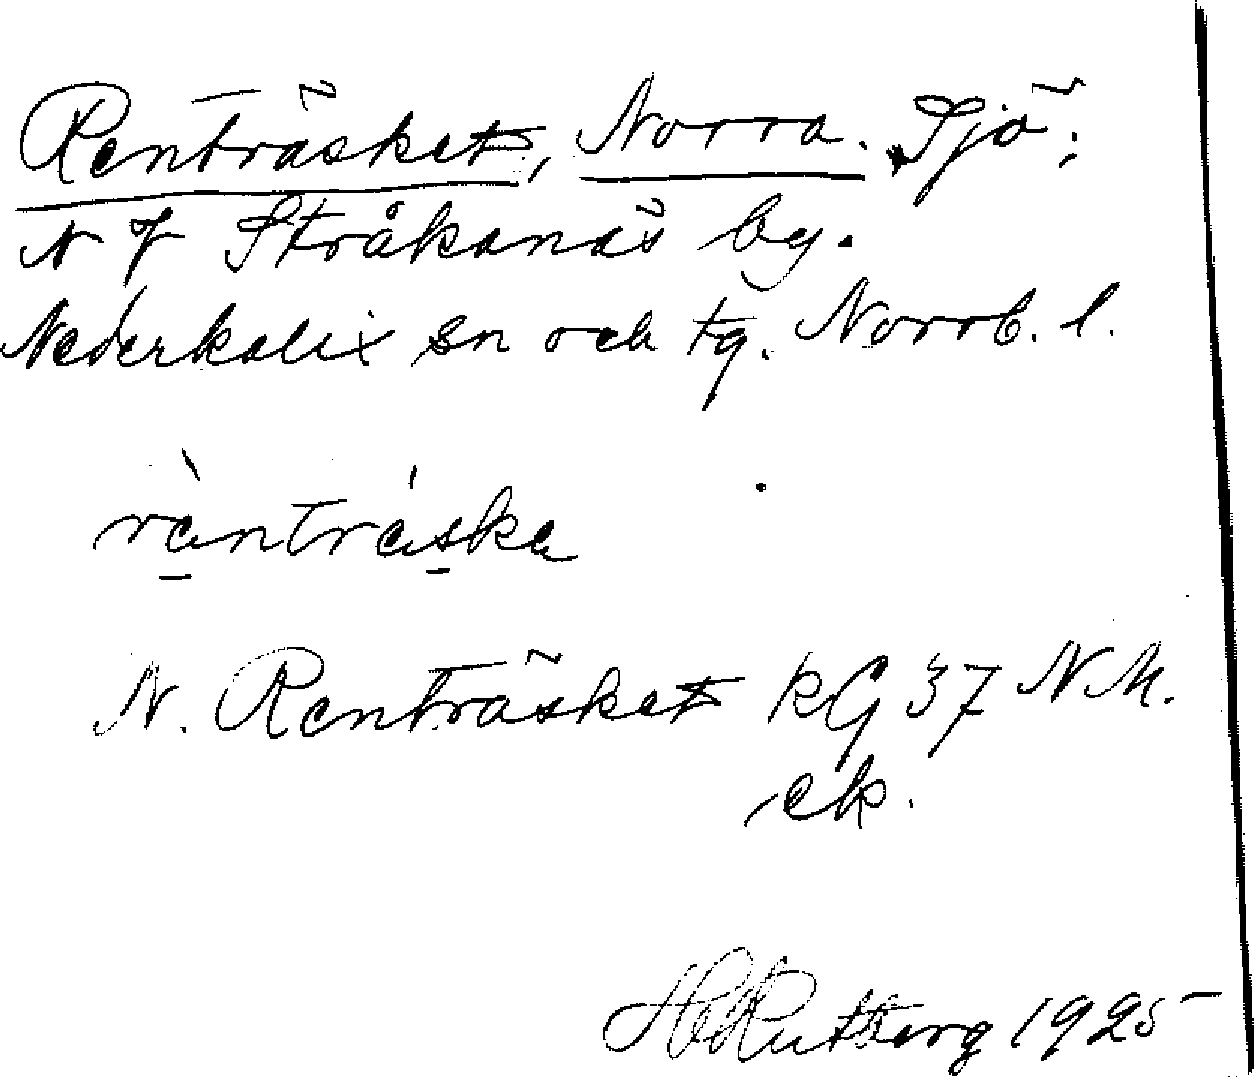 Renträsket, Norra. Sjö;
N f Stråkanäs by.
Nederkalix sn och tg. Norrb. l.
rànträska
N. Renträsket kG 37 N.M.
ek.
Rutberg 1925